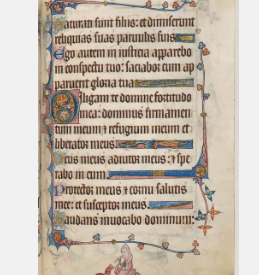 Saturati sunt filiis: et dimiserunt
reliquias suas paruulis suis
Ego autem in iusticia apparebo
in conspectu tuo: saciabor cum ap
paruerit gloria tua
Diligam te domine fortitudo
mea: dominus firmamen
tum meum et refugium meum et
liberator meus
Deus meus adiutor meus: et spe
rabo in eum
Protector meus et cornu salutis
mee: et susceptor meus
Laudans inuocabo dominum: